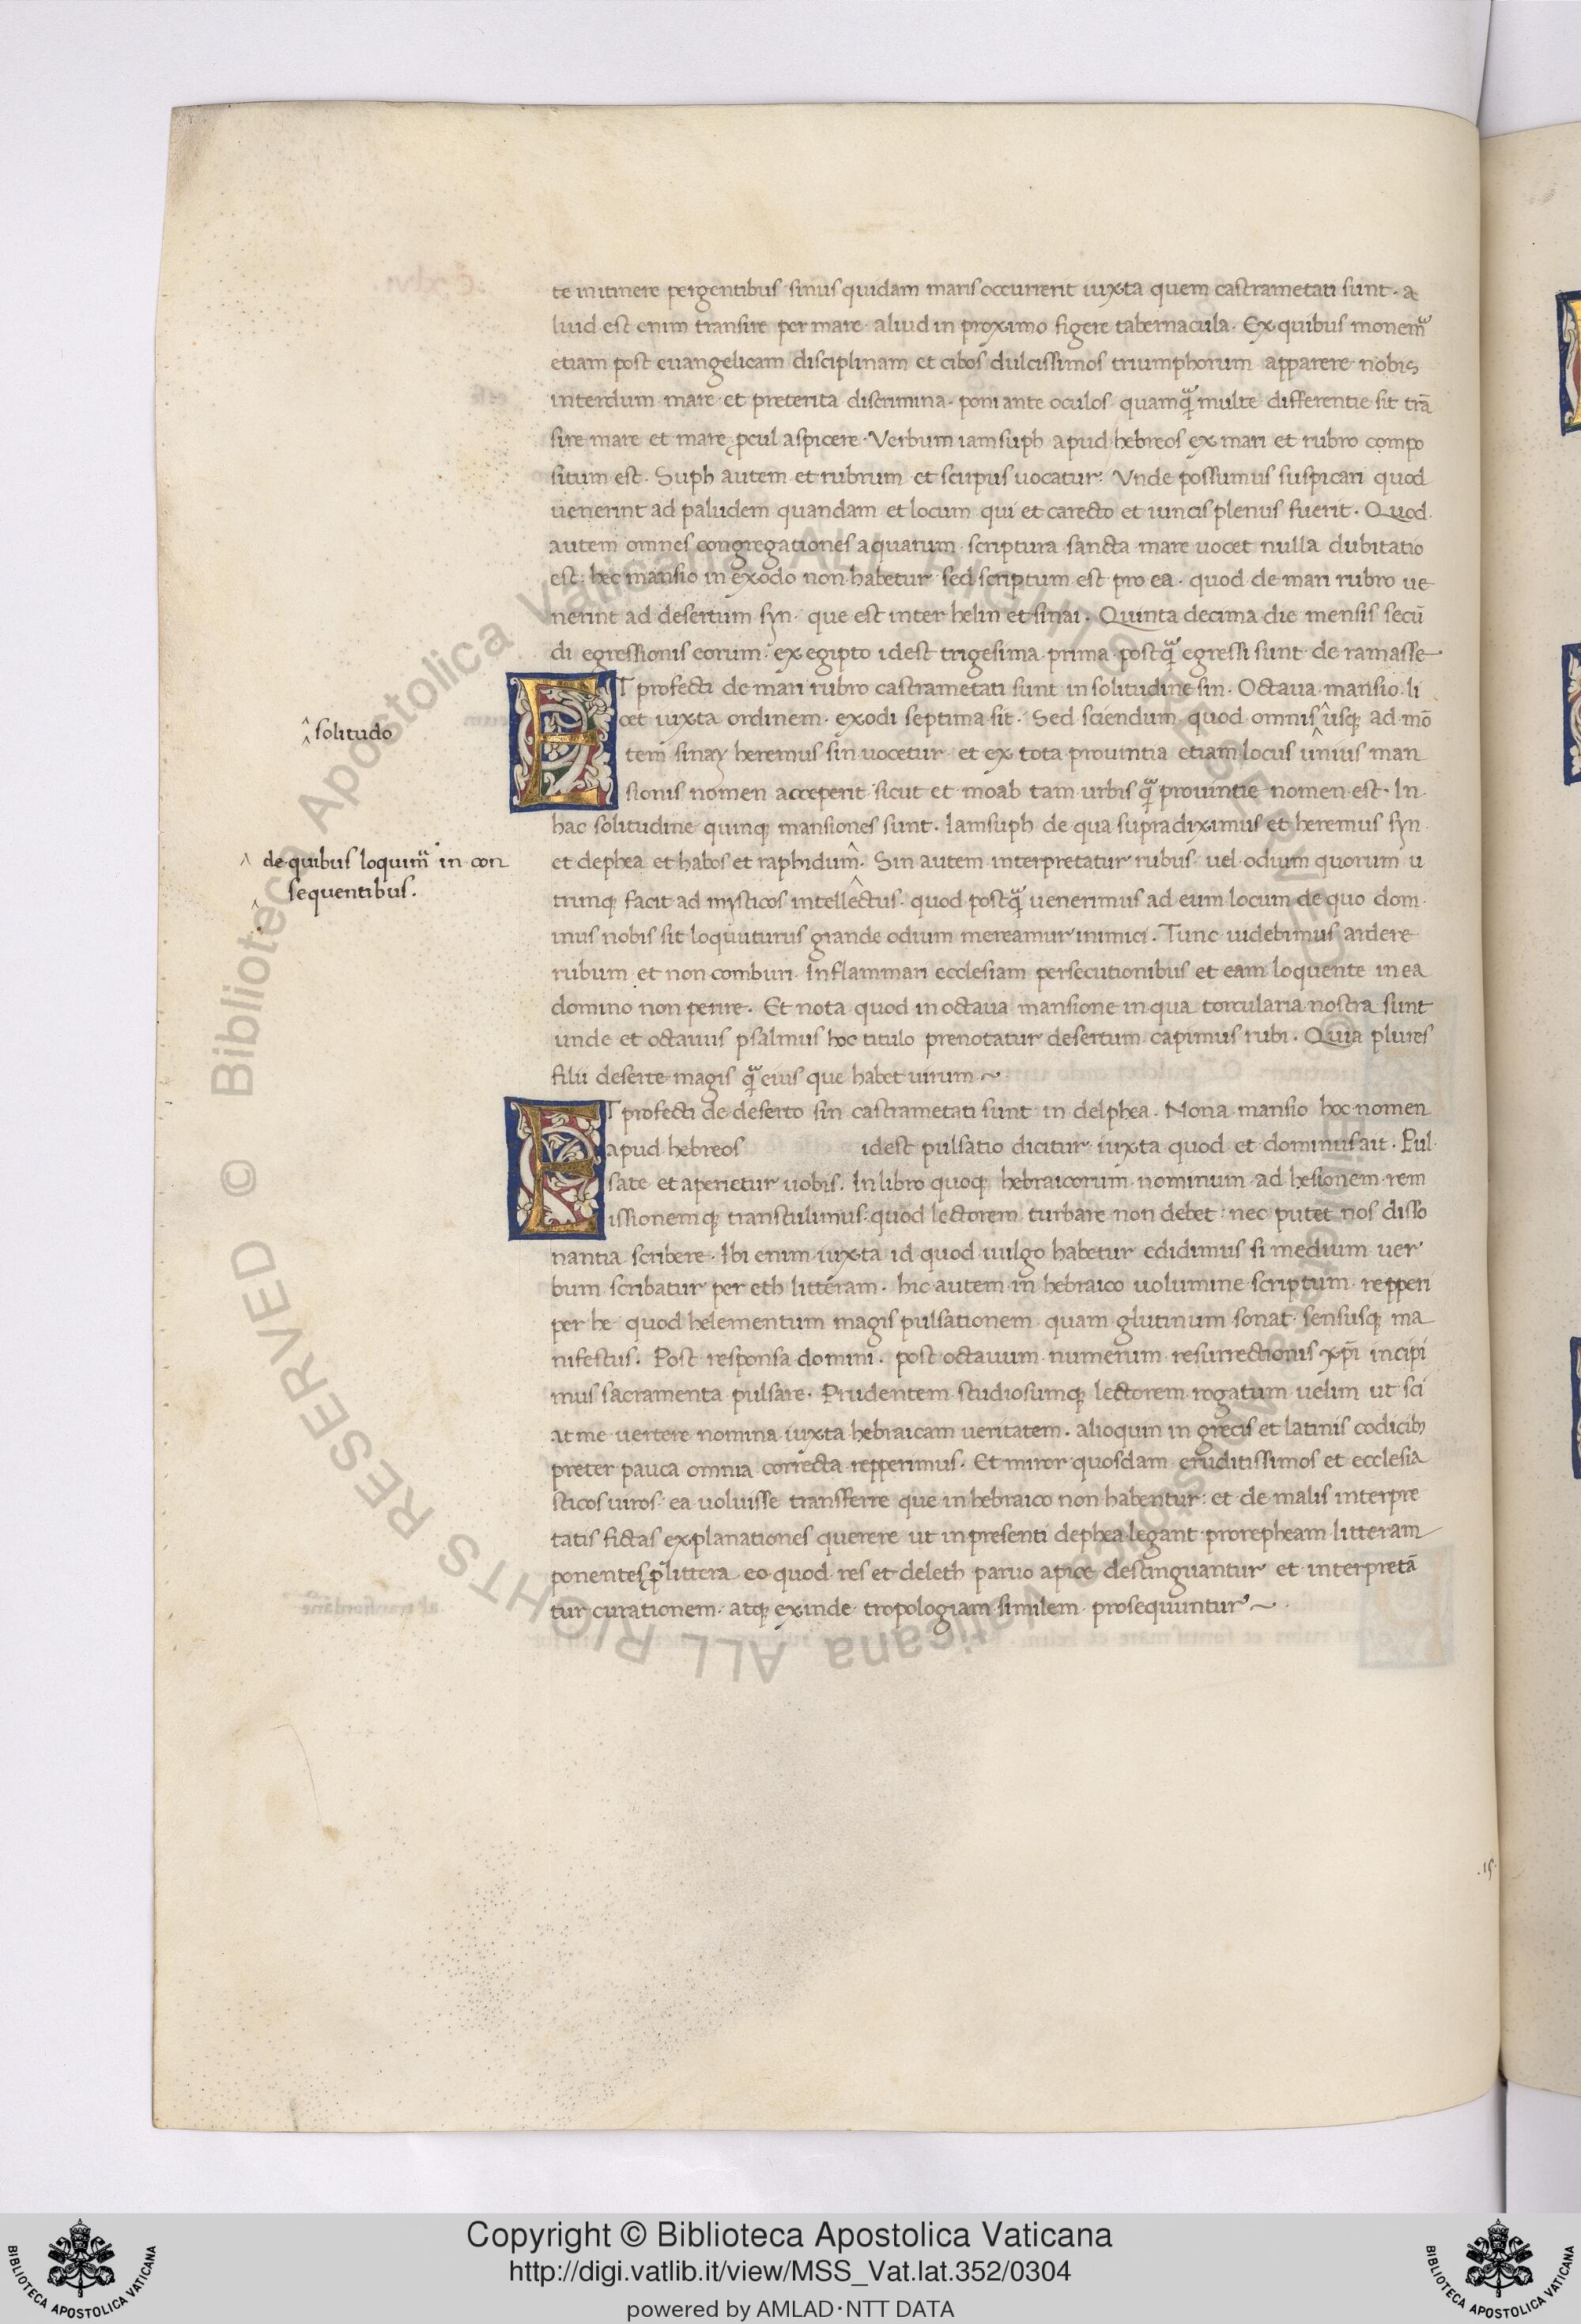 te in itinere pergentibus sinus quidam maris occurrerit iuxta quem castrametati sunt. a
liud est enim transire per mare aliud in proximo figere tabernacula. Ex quibus monemur
etiam post euangelicam disciplinam et cibos dulcissimos triumphorum apparere nobis
interdum mare et preterita discrimina. poni ante oculos quamquam multe differentie sit trā
sire mare et mare ꝓcul aspicere. Verbum iamsuph apud hebreos ex mari et rubro compo
situm est. Suph autem et rubrum et scirpus uocatur. Vnde possumus suspicari quod
uenerint ad paludem quandam et locum qui et carecto et iuncis plenus fuerit. Quod
autem omnes congregationes aquarum scriptura sancta mare uocet nulla dubitatio
est. hec mansio in exodo non habetur sed scriptum est pro ea. quod de mari rubro ue
nerint ad desertum syn. que est inter helin et sinai. Quinta decima die mensis secū
di egressionis eorum. ex egipto idest trigesima prima postq̃ egressi sunt de ramasse
ET profecti de mari rubro castrametati sunt in solitudine sin. Octaua mansio li
cet iuxta ordinem exodi septima sit. Sed sciendum quod omnis ^ usq; ad mō
^ solitudo
tem sinay heremus sin uocetur et ex tota prouintia etiam locus unius man
sionis nomen acceperit sicut et moab tam urbis q̃ prouintie nomen est. In
hac solitudine quinq; mansiones sunt. Iamsuph de qua supra diximus et heremus syn
et dephea et halos et raphidum^. Sin autem interpretatur rubus uel odium quorum u
^ de quibus loquimur in con
sequentibus.
trunq; facit ad mysticos intellectus. quod postq̃ uenerimus ad eum locum de quo dom
inus nobis sit loquuturus grande odium mereamur inimici. Tunc uidebimus ardere
rubum et non comburi. Inflammari ecclesiam persecutionibus et eam loquente in ea
domino non perire. Et nota quod in octaua mansione in qua torcularia nostra sunt
unde et octauus psalmus hoc titulo prenotatur desertum capimus rubi. Quia plures
filii deserte magis q̃ eius que habet uirum
ET profecti de deserto sin castrametati sunt in delphea. Nona mansio hoc nomen
apud hebreos idest pulsatio dicitur iuxta quod et dominus ait. Pul
sate et aperietur uobis. In libro quoq; hebraicorum nominum ad hesionem rem
issionemq; transtulimus. quod lectorem turbare non debet: nec putet nos disso
nantia scribere. Ibi enim iuxta id quod uulgo habetur edidimus si medium uer
bum scribatur per eth litteram. hic autem in hebraico uolumine scriptum repperi
per he quod helementum magis pulsationem quam glutinum sonat sensusq; ma
nifestus. Post responsa domini. post octauum numerum resurrectionis xp̄i incipi
mus sacramenta pulsare. Prudentem studiosumq; lectorem rogatum uelim ut sci
at me uertere nomina iuxta hebraicam ueritatem. alioquin in grecis et latinis codicib;
preter pauca omnia correcta repperimus. Et miror quosdam eruditissimos et ecclesia
sticos uiros. ea uoluisse transferre que in hebraico non habentur: et de malis interpre
tatis fictas explanationes querere ut in presenti dephea legant prorepheam litteram
ponentes ꝓ littera eo quod res et deleth paruo apice destinguantur et interpretā
tur curationem. atq; exinde tropologiam similem prosequuntur
.15.
Copyright © Biblioteca Apostolica Vaticana
http://digi.vatlib.it/view/MSS_Vat.lat.352/0304
powered by AMLAD·NTT DATA